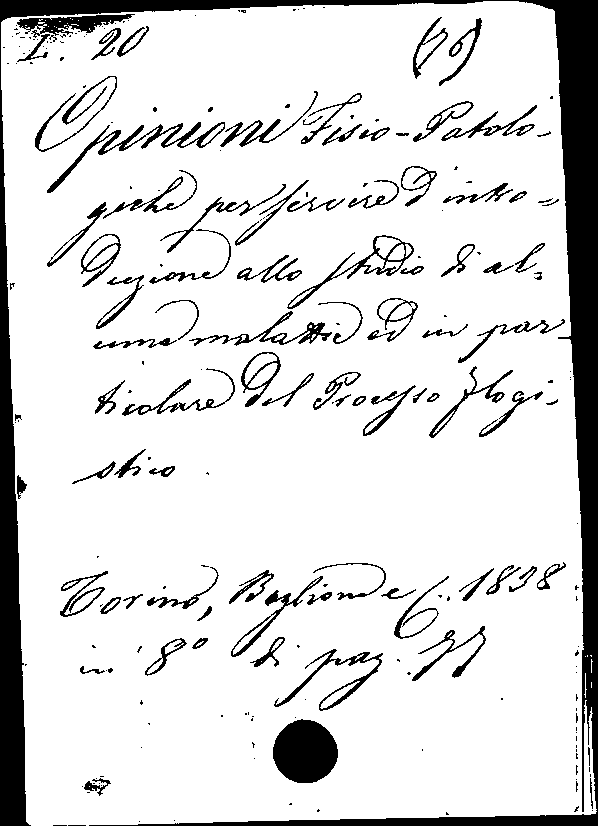 L. 20 (76)
Opinioni Fisio-Patolo-
giche per servire d'intro-
duzione allo studio di al-
cune malattie ed in par-
ticolare del Processo flogi-
stico.
Torino, Baglione e C. 1838
in 8° di pag. 77